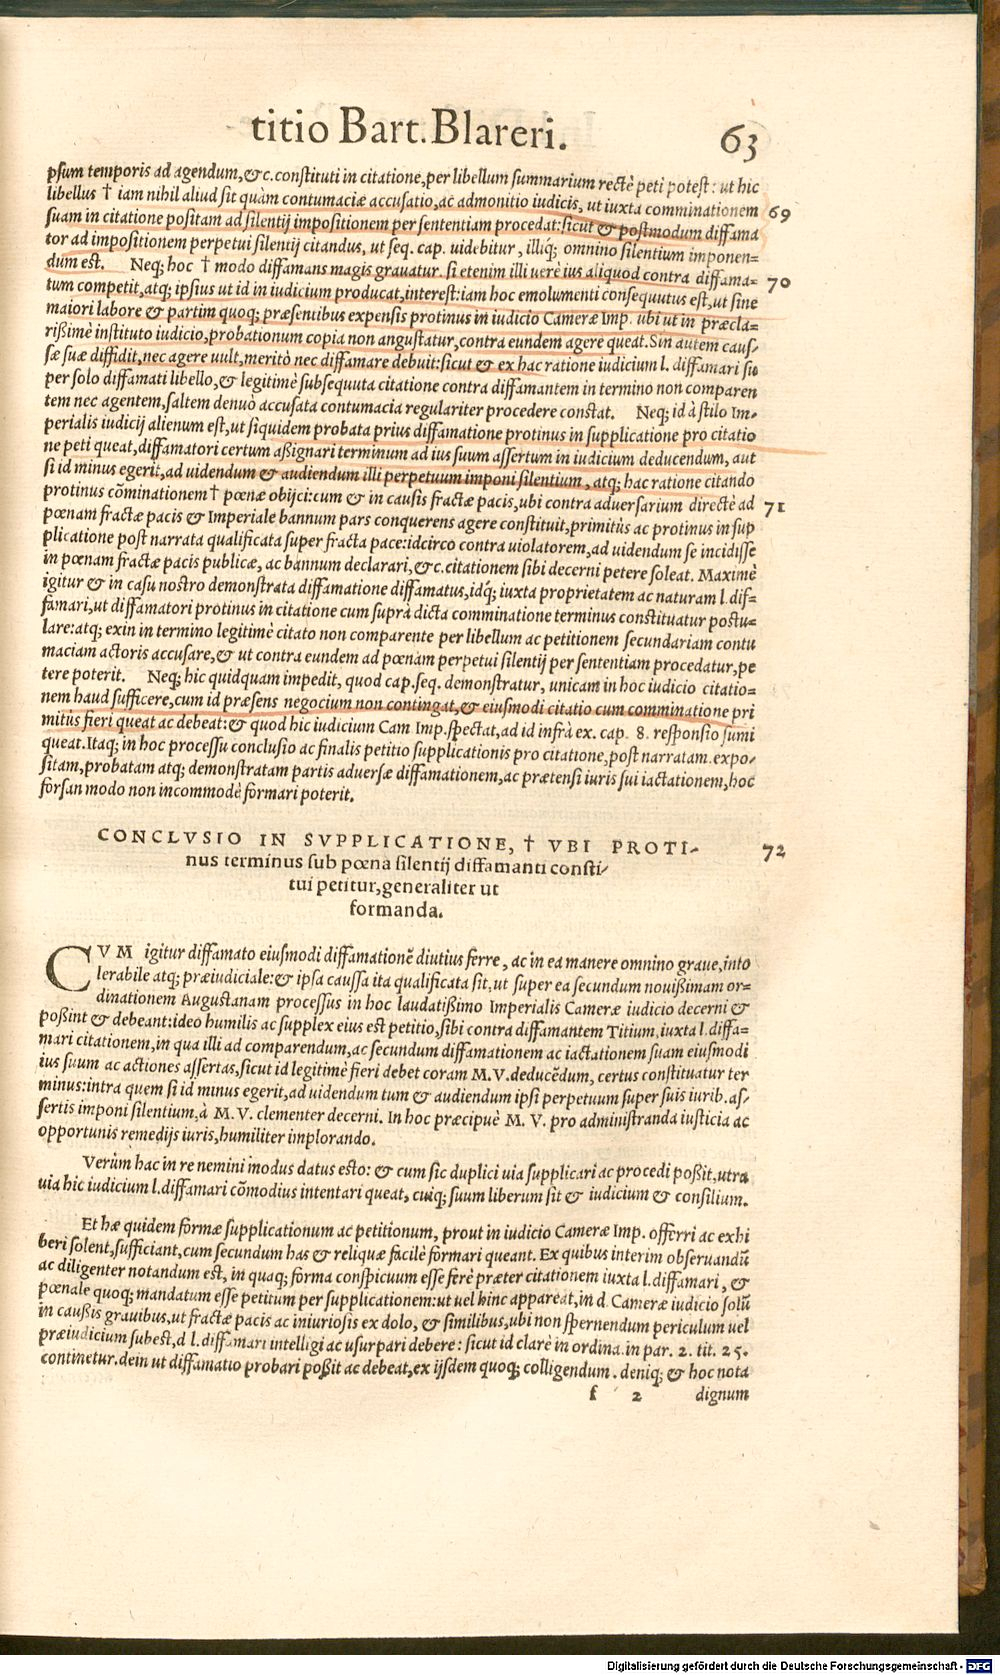 titio Bart. Blareri. 63
psum temporis ad agendum, &c. constituti in citatione, per libellum summarium rectè peti potest: ut hic
libellus † iam nihil aliud sit quàm contumaciæ accusatio, ac admonitio iudicis, ut iuxta comminationem 69
suam in citatione positam ad silentij impositionem per sententiam procedat: sicut & postmodum diffama
tor ad impositionem perpetui silentij citandus, ut seq. cap. uidebitur, illiq; omnino silentium imponen-
dum est. Neq; hoc † modo diffamans magis grauatur. si etenim illi uerè ius aliquod contra diffama- 70
tum competit, atq; ipsius ut id in iudicium producat, interest: iam hoc emolumenti consequutus est, ut sine
maiori labore & partim quoq; præsentibus expensis protinus in iudicio Cameræ Imp. ubi ut in præcla-
rißimè instituto iudicio, probationum copia non angustatur, contra eundem agere queat. Sin autem caus-
sæ suæ diffidit, nec agere uult, meritò nec diffamare debuit: sicut & ex hac ratione iudicium l. diffamari su
per solo diffamati libello, & legitimè subsequuta citatione contra diffamantem in termino non comparen
tem nec agentem, saltem denuò accusata contumacia regulariter procedere constat. Neq; id à stilo Im-
perialis iudicij alienum est, ut siquidem probata prius diffamatione protinus in supplicatione pro citatio
ne peti queat, diffamatori certum aßignari terminum ad ius suum assertum in iudicium deducendum, aut
si id minus egerit, ad uidendum & audiendum illi perpetuum imponi silentium, atq; hac ratione citando
protinus cõminationem † pœnæ obijci: cum & in causis fractæ pacis, ubi contra aduersarium directè ad 71
pœnam fractæ pacis & Imperiale bannum pars conquerens agere constituit, primitùs ac protinus in sup
plicatione post narrata qualificata super fracta pace: idcirco contra uiolatorem, ad uidendum se incidisse
in pœnam fractæ pacis publicæ, ac bannum declarari, &c. citationem sibi decerni petere soleat. Maximè
igitur & in casu nostro demonstrata diffamatione diffamatus, idq́; iuxta proprietatem ac naturam l. dif-
famari, ut diffamatori protinus in citatione cum suprà dicta comminatione terminus constituatur postu-
lare: atq; exin in termino legitimè citato non comparente per libellum ac petitionem secundariam contu
maciam actoris accusare, & ut contra eundem ad pœnam perpetui silentij per sententiam procedatur, pe
tere poterit. Neq; hic quidquam impedit, quod cap. seq. demonstratur, unicam in hoc iudicio citatio-
nem haud sufficere, cum id præsens negocium non contingat, & eiusmodi citatio cum comminatione pri
mitùs fieri queat ac debeat: & quod hic iudicium Cam Imp. spectat, ad id infrà ex. cap. 8. responsio sumi
queat. Itaq; in hoc processu conclusio ac finalis petitio supplicationis pro citatione, post narratam. expo-
sitam, probatam atq; demonstratam partis aduersæ diffamationem, ac prætensi iuris sui iactationem, hoc
forsan modo non incommodè formari poterit.
CONCLVSIO IN SVPPLICATIONE, † VBI PROTI- 72
nus terminus sub pœna silentij diffamanti consti-
tui petitur, generaliter ut
formanda.
CVM igitur diffamato eiusmodi diffamationẽ diutius ferre, ac in ea manere omnino graue, into
lerabile atq; præiudiciale: & ipsa caussa ita qualificata sit, ut super ea secundum nouißimam or-
dinationem Augustanam processus in hoc laudatißimo Imperialis Cameræ iudicio decerni &
poßint & debeant: ideo humilis ac supplex eius est petitio, sibi contra diffamantem Titium, iuxta l. diffa-
mari citationem, in qua illi ad comparendum, ac secundum diffamationem ac iactationem suam eiusmodi
ius suum ac actiones assertas, sicut id legitimè fieri debet coram M. V. deducẽdum, certus constituatur ter
minus: intra quem si id minus egerit, ad uidendum tum & audiendum ipsi perpetuum super suis iurib. as-
sertis imponi silentium, à M. V. clementer decerni. In hoc præcipuè M. V. pro administranda iusticia ac
opportunis remedijs iuris, humiliter implorando.
Verùm hac in re nemini modus datus esto: & cum sic duplici uia supplicari ac procedi poßit, utra
uia hic iudicium l. diffamari cõmodius intentari queat, cuiq; suum liberum sit & iudicium & consilium.
Et hæ quidem formæ supplicationum ac petitionum, prout in iudicio Cameræ Imp. offerri ac exhi
beri solent, sufficiant, cum secundum has & reliquæ facilè formari queant. Ex quibus interim obseruandũ
ac diligenter notandum est, in quaq; forma conspicuum esse ferè præter citationem iuxta l. diffamari, &
pœnale quoq; mandatum esse petitum per supplicationem: ut uel hinc appareat, in d. Cameræ iudicio solũ
in caußis grauibus, ut fractæ pacis ac iniuriosis ex dolo, & similibus, ubi non spernendum periculum uel
præiudicium subest, d l. diffamari intelligi ac usurpari debere: sicut id clarè in ordina. in par. 2. tit. 25.
continetur. dein ut diffamatio probari poßit ac debeat, ex ijsdem quoq; colligendum. deniq; & hoc nota
f 2 dignum
Digitalisierung gefördert durch die Deutsche Forschungsgemeinschaft - DFG